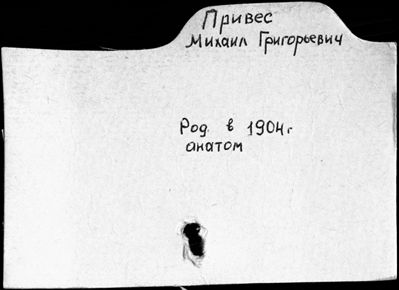 Привес
Михаил Григорьевич
Род. в 1904г.
анатом